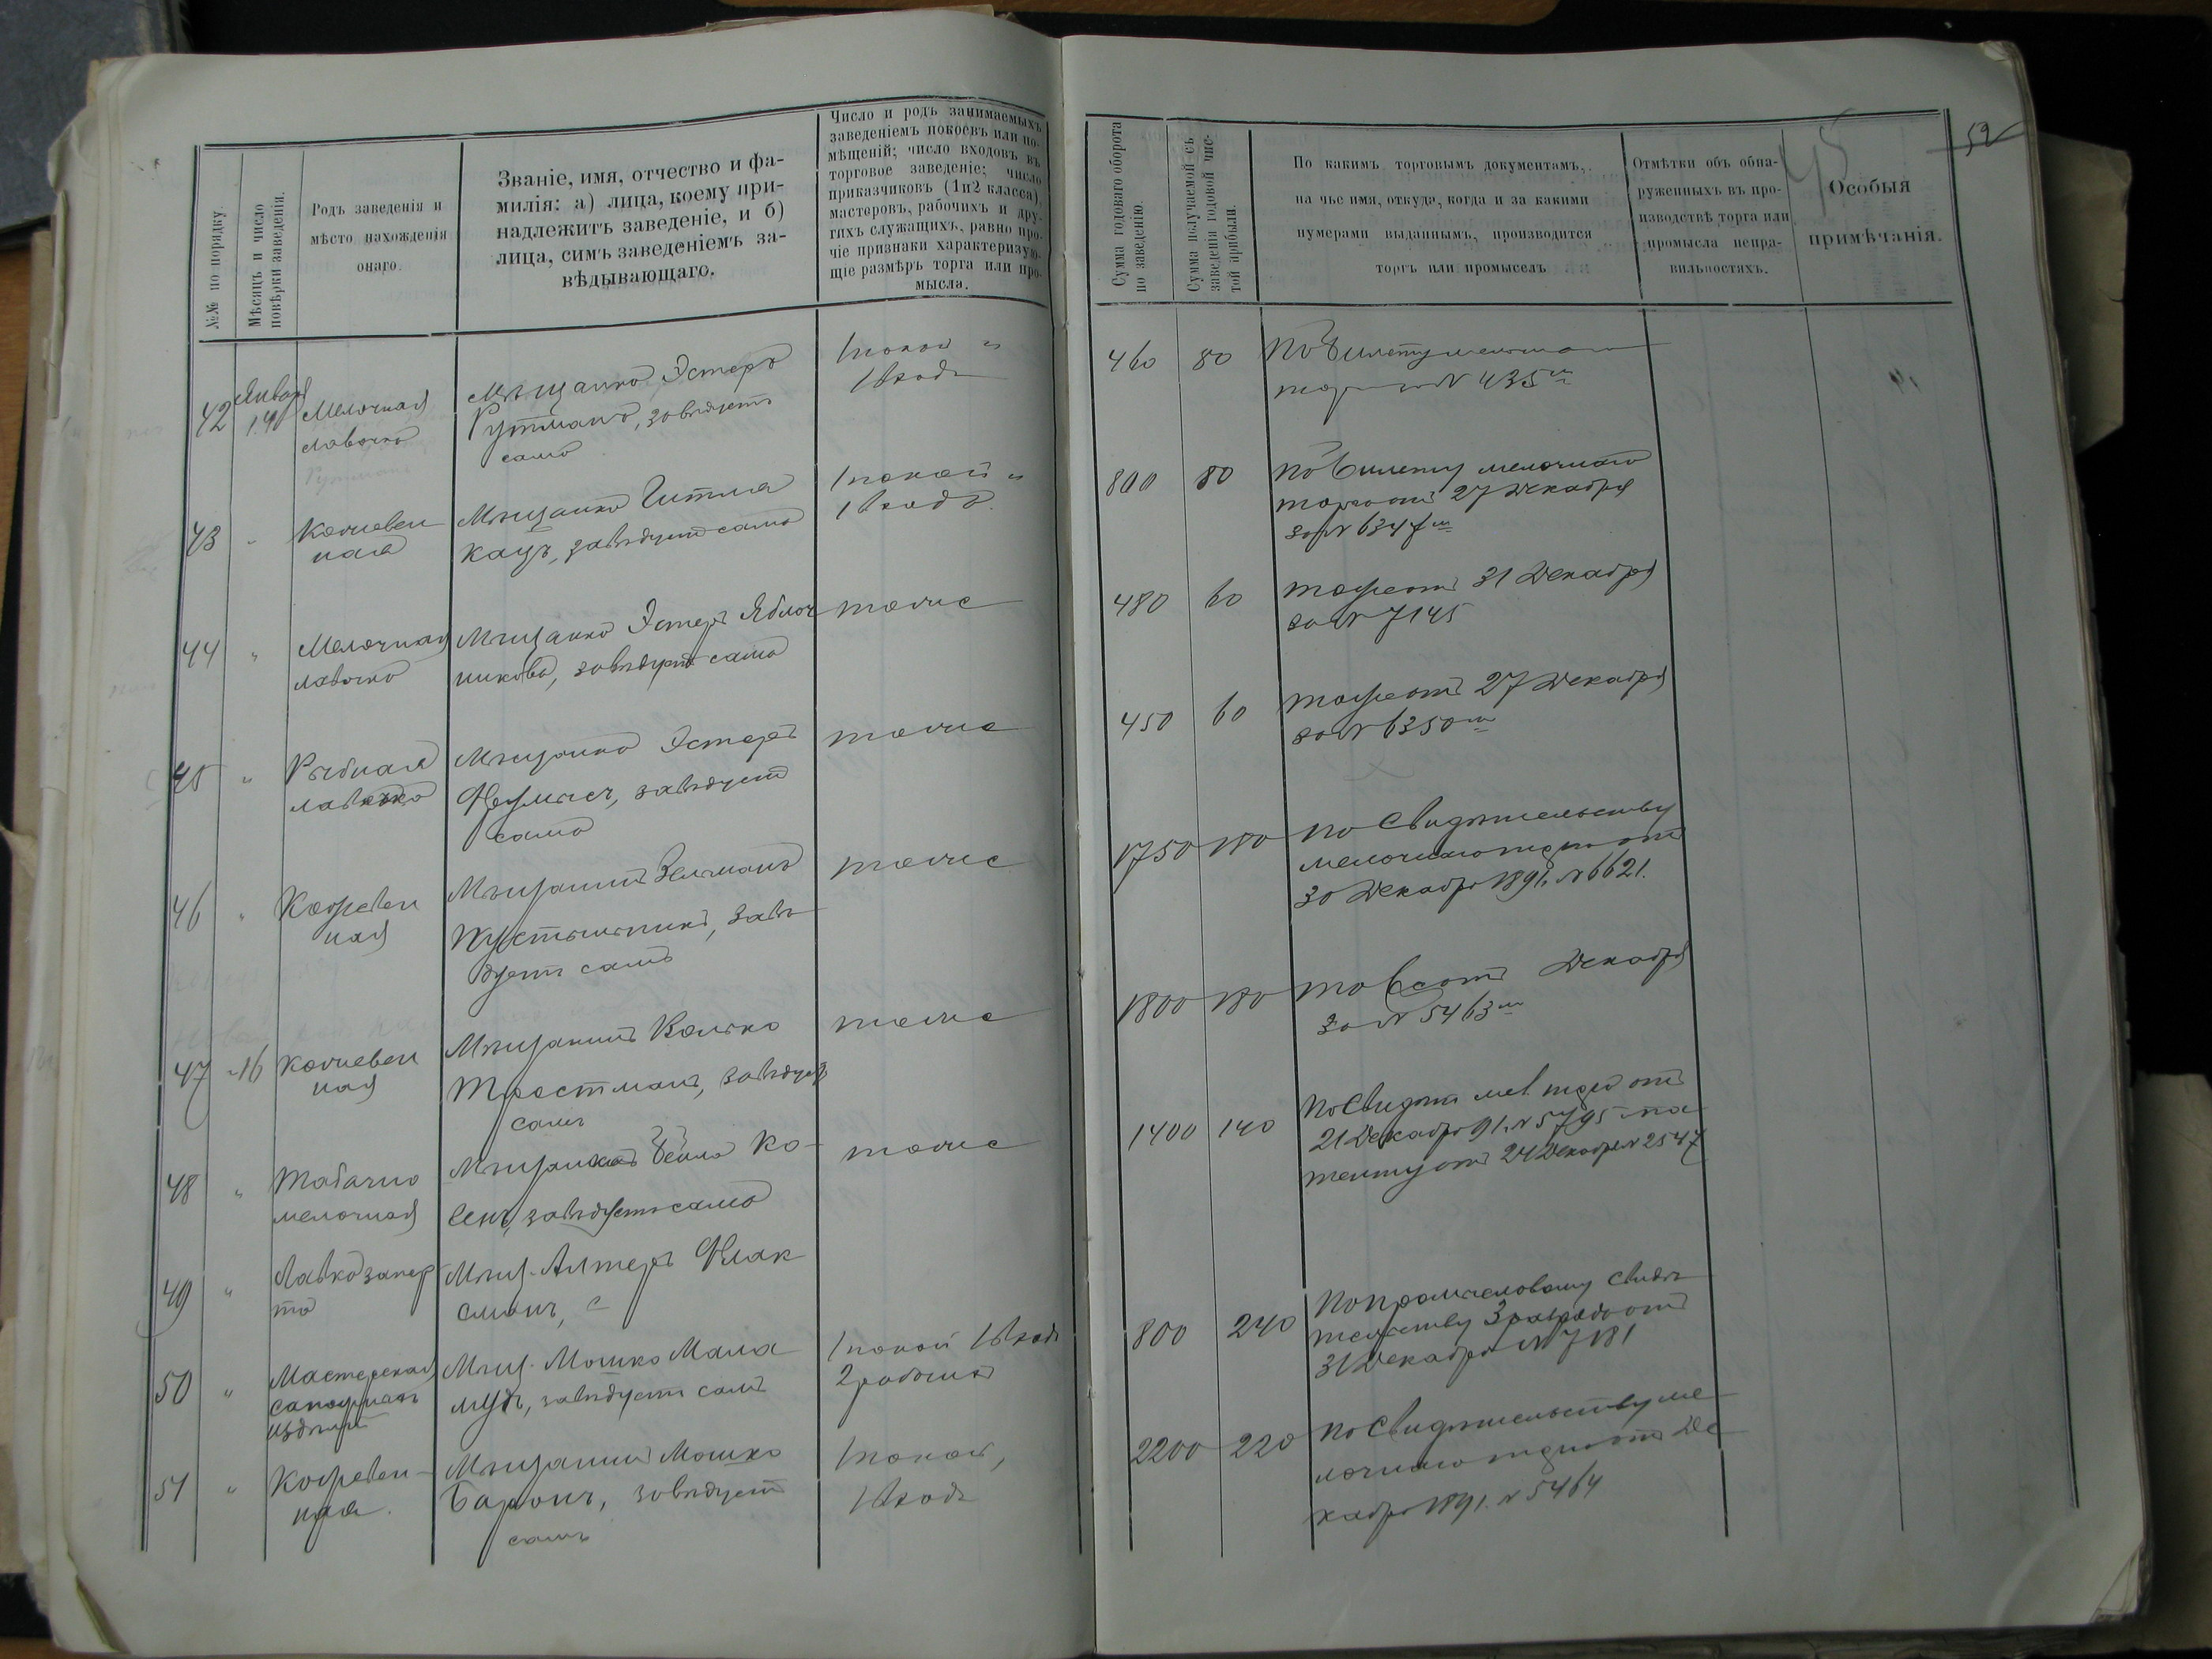 №№ по порядку.
Мѣсяцъ и число
повѣрки заведенія.
Родъ заведенія и
мѣсто нахожденія
онаго.
Званіе, имя, отчество и фа-
милія: а) лица, коему при-
надлежитъ заведеніе, и б)
лица, симъ заведеніемъ за-
вѣдывающаго.
Число и родъ занимаемыхъ
заведеніемъ покоевъ или по-
мѣщеній; число входовъ въ
торговое заведеніе; число
приказчиковъ (1 и 2 класса),
мастеровъ, рабочихъ и дру-
гихъ служащихъ, равно про-
чіе признаки характеризую-
щіе размѣръ торга или про-
мысла.
Сумма годоваго оборота
по заведенію.
Сумма получаемой съ
заведенія годовой чис-
той прибыли.
По какимъ торговымъ документамъ,
на чье имя, откуда, когда и за какими
нумерами выданнымъ, производится
торгъ или промыселъ
Отмѣтки объ обна-
руженныхъ въ про-
изводствѣ торга или
промысла непра-
вильностяхъ.
Особыя
примѣчанія.
59
42
Января
Мелочная
лавочка
Мѣщанка Эстеръ
Рутманъ, завѣдуетъ
сама
1 покой и
1 входъ
460
80
По билету
№ 435
43
Кожевен
ная
Мѣщанка Гитля
Кацъ, завѣдуетъ сама
1 покой и
1 входъ
800
80
По билету мелочнаго
торга отъ 27 Декабря
за № 6347
44
Мелочная
лавочка
Мѣщанка Эстеръ Яблоч
никова, завѣдуетъ сама
тоже
480
60
тоже отъ 31 Декабря
за № 7145
45
Рыбная
лавочка
Мѣщанка Эстеръ
завѣдуетъ
сама
тоже
450
60
тоже отъ 27 Декабря
за № 6350
46
Кожевен
ная
Мѣщанинъ Зельманъ
Пустыльникъ, завѣ
дуетъ самъ
тоже
1750
180
По свидѣтельству
мелочнаго торга отъ
30 Декабря 1891. № 6621.
47
16
Кожевен
ная
Мѣщанинъ Волько
Тростманъ, завѣдуетъ
самъ
тоже
1800
180
отъ Декабря
за № 5463
48
Табачно
мелочная
Ко-
генъ, завѣдуетъ сама
тоже
1400
140
По свидѣт. мел. торга отъ
21 Декабря 91. № 5795 па
тенту отъ 24 Декабря № 2547
49
Лавка запер
та
Мѣщ. Алтеръ Флак
сманъ,
50
Мастерская
сапожныхъ
издѣлій
Мѣщ. Мошко Мала
мудъ, завѣдуетъ самъ
1 покой 1 входъ
2 рабочихъ
800
240
По промысловому свидѣ
тельству 3 разряда отъ
31 Декабря № 7181
51
Кожевен-
ная.
Мѣщанинъ Мошко
Баронъ, завѣдуетъ
самъ
1 покой,
1 входъ
2200
220
По свидѣтельству ме
лочнаго торга отъ Де
кабря 1891. № 5464